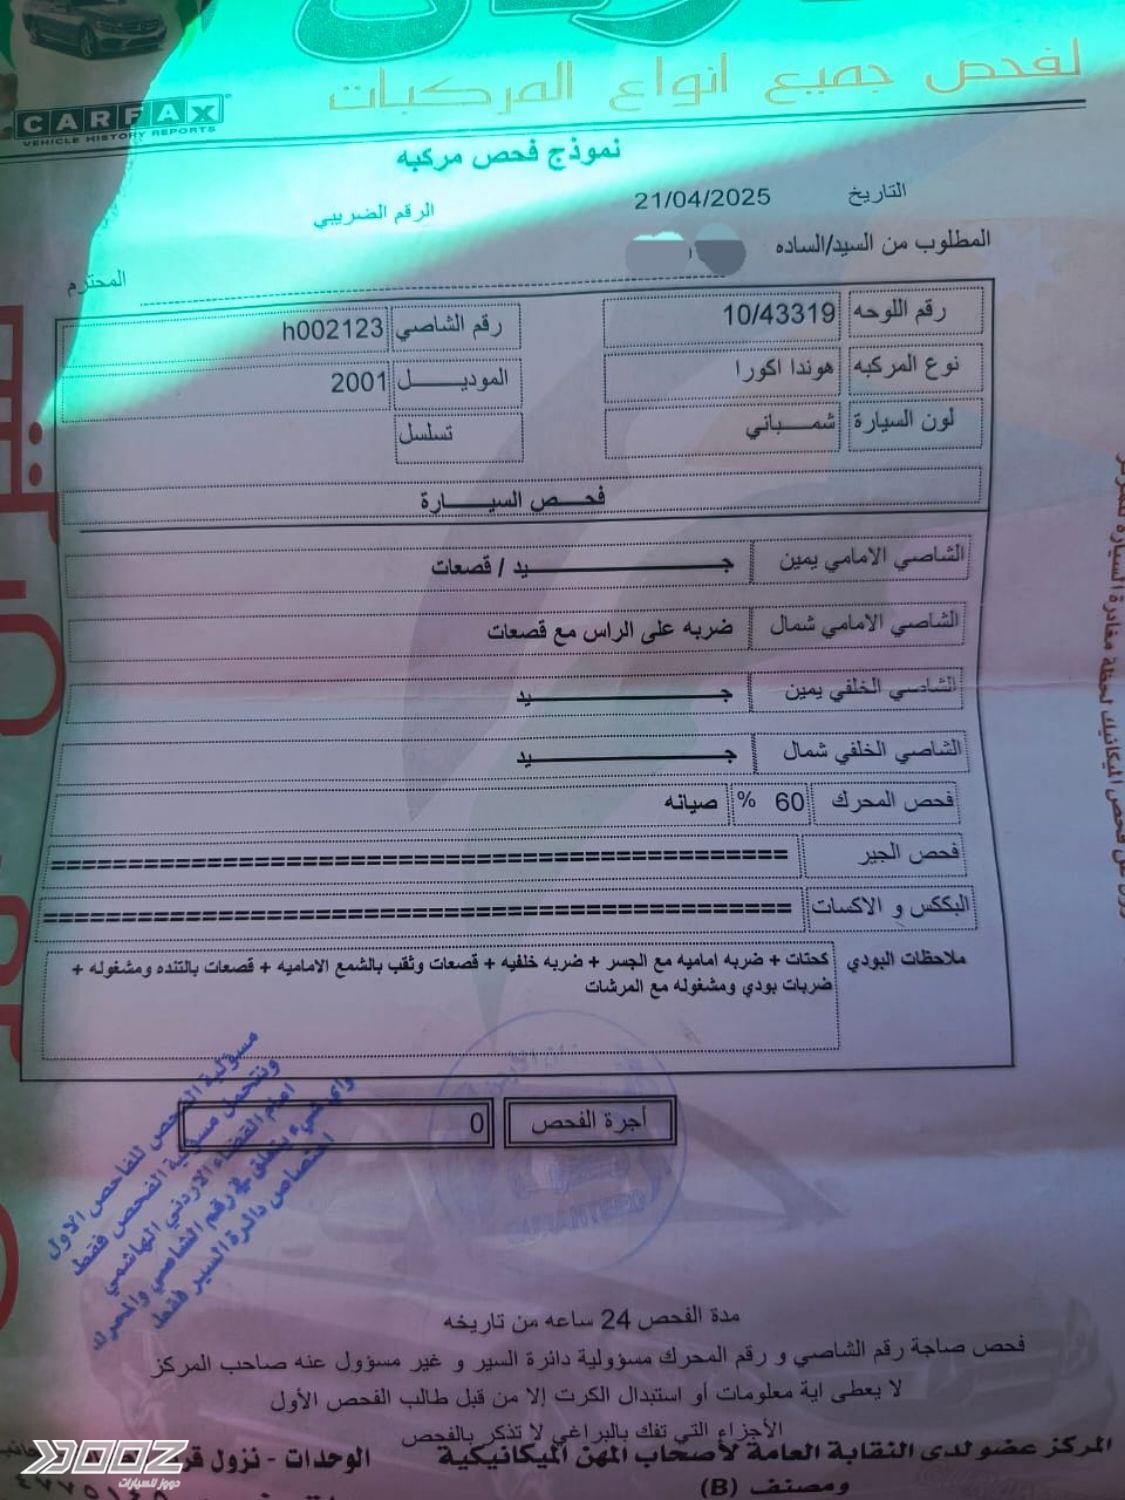 لفحص جميع انواع المركبات
CARFAX
VEHICLE HISTORY REPORTS
نموذج فحص مركبه
التاريخ 21/04/2025 الرقم الضريبي
المطلوب من السيد/الساده
المحترم
رقم اللوحه 10/43319 رقم الشاصي h002123
نوع المركبه هوندا اكورا الموديـــــل 2001
لون السيارة شمـــباني تسلسل
فحـــص الســـيـــــارة
الشاصي الامامي يمين جـــــــــــــــيد / قصعات
الشاصي الامامي شمال ضربه على الراس مع قصعات
الشاصي الخلفي يمين جـــــــــــــــيد
الشاصي الخلفي شمال جـــــــــــــــيد
فحص المحرك 60 % صيانه
فحص الجير ================================================
البككس و الاكسات ================================================
ملاحظات البودي كحتات + ضربه اماميه مع الجسر + ضربه خلفيه + قصعات وثقب بالشمع الاماميه + قصعات بالتنده ومشغوله +
ضربات بودي ومشغوله مع المرشات
أجرة الفحص 0
مسؤلية الفحص للفاحص الاول
ونتحمل مسؤلية الفحص فقط
امام القضاء الاردني الهاشمي
واي شيء يتعلق في رقم الشاصي والمحرك
اختصاص دائرة السير فقط
مدة الفحص 24 ساعه من تاريخه
فحص صاجة رقم الشاصي و رقم المحرك مسؤولية دائرة السير و غير مسؤول عنه صاحب المركز
لا يعطى اية معلومات أو استبدال الكرت إلا من قبل طالب الفحص الأول
الأجزاء التي تفك بالبراغي لا تذكر بالفحص
المركز عضو لدى النقابة العامة لأصحاب المهن الميكانيكية
ومصنف (B)
الوحدات - نزول
فحص الميكانيك لحظة مغادرة السيارة للمركز
دووز للسيارات